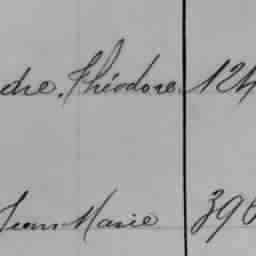 dre, Théodore 124
Jean Marie 396